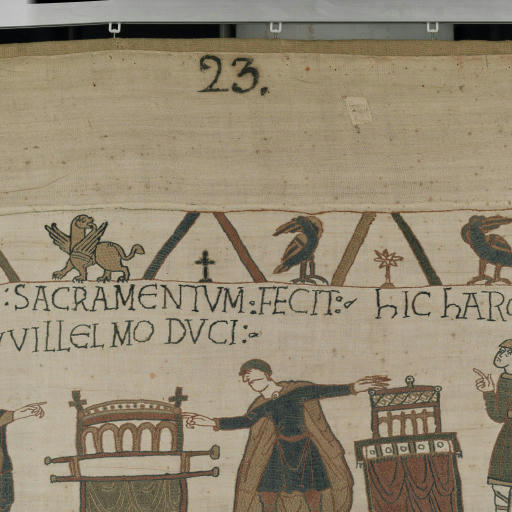 23.
: SACRAMENTVM : FECIT :- hIC hARO
VVILLELMO DVCI :-